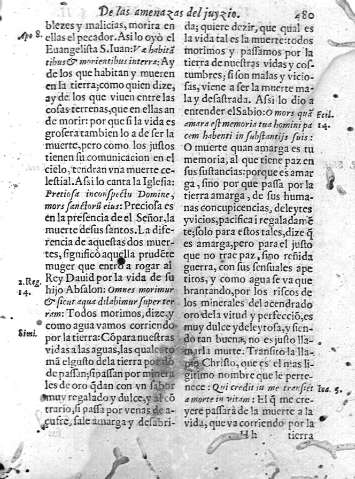 De las amenazas del juyzio. 480
blezes y malicias, morira en
ellas el pecador. Assi lo oyò el
Apo 8.
Euangelista S. Iuan: Va habita
tibus & morientibus interra: Ay
de los que habitan y mueren
en la tierra; como quien dize,
ay de los que viuen entre las
cosas terrenas, que en ellas an
de morir: por que si la vida es
grosera tambien lo a de ser la
muerte, pero como los justos
tienen su comunicacion en el
cielo, tendran vna muerte ce-
lestial. Assi lo canta la Iglesia:
Pretiosa inconspectu Domine,
mors sanctorū eius: Preciosa es
en la presencia de el Señor, la
muerte de sus santos. La dife-
rencia de aquestas dos muer-
tes, significò aquella prudēte
muger que entrò a rogar al
2. Reg. 14.
Rey Dauid por la vida de su
hijo Absalon: Omnes morimur
& sicut aquæ dilabimur super ter
ram: Todos morimos, dize, y
como agua vamos corriendo
Simi.
por la tierra: Cōpara nuestras
vidas a las aguas, las quales to
mā el gusto de la tierra por dō
de passan; si passan por minera
les de oro qdan con vn sabor
muy regalado y dulce, y al cō
trario, si passa por venas de a-
çufre, sale amarga y desabri-
da; quiere dezir, que qual es
la vida tal es la muerte: todos
morimos y passamos por la
tierra de nuestras vidas y cos-
tumbres; si son malas y vicio-
sas, viene a ser la muerte ma-
la y desastrada. Assi lo dio a
entender el Sabio: O mors quā
Eccl. 14.
amara est memoria tua homini pa
cem habenti in substantijs suis:
O muerte quan amarga es tu
memoria, al que tiene paz en
sus sustancias: porque es amar
ga, sino por que passa por la
tierra amarga, de sus huma-
nas concupicencias, deleytes
y vicios, pacifica i regaladamē
te; solo para estos tales, dize q̄
es amarga, pero para el justo
que no trae paz, sino reñida
guerra, con sus sensuales ape
titos, y como agua se va que
brantando, por los riscos de
los minerales del acendrado
oro de la virtud y perfecciō, es
muy dulce y deleytosa, y sien-
do tan buena, no es justo lla-
marla muerte. Transito la lla-
mò Christo, que es el mas li-
gitimo nombre que le perte-
nece: Qui credit in me transiet
Ioa. 5.
a morte in vitam: El q̄ me cre-
yere passarà de la muerte a la
vida, que va corriendo por la
H h tierra